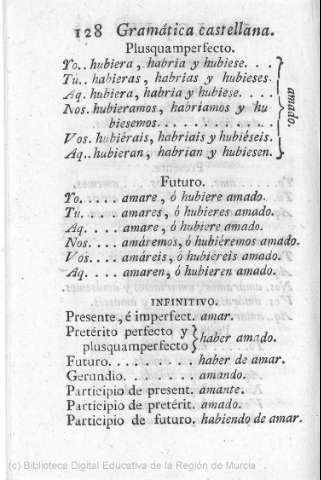 128 Gramática castellana.
Plusquamperfecto.
Yo.. hubiera, habria y hubiese. . . .
Tu.. habieras, habrias y hubieses.
Aq. hubiera, habria y hubiese. . . .
Nos. hubieramos, habriamos y hu
biesemos. . . . . . . . . . . .
Vos. hubiérais, habriais y hubiéseis.
Aq.. hubieran, habrian y hubiesen.
amado.
Futuro.
Yo. . . . . amare, ó hubiere amado.
Tu. . . . . amares, ó hubieres amado.
Aq. . . . . amare, ó hubiere amado.
Nos. . . . amáremos, ó hubiéremos amado.
Vos. . . . amáreis, ó hubiéreis amado.
Aq. . . . . amaren, ó hubieren amado.
INFINITIVO.
Presente, é imperfect. amar.
Pretérito perfecto y
plusquamperfecto
haber amado.
Futuro. . . . . . . . . haber de amar.
Gerundio. . . . . . . . amando.
Participio de present. amante.
Participio de pretérit. amado.
Participio de futuro. habiendo de amar.
(c) Biblioteca Digital Educativa de la Región de Murcia